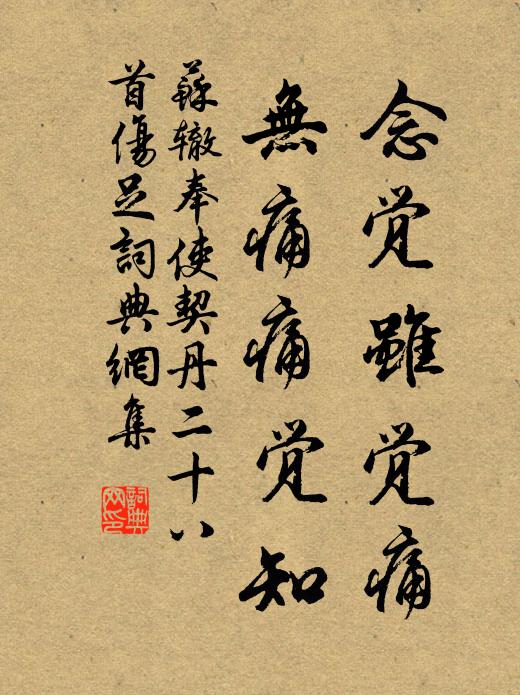 念觉雖觉痛
無痛痛觉知
蘇辙奉使契丹二十八
首傷足詞典網集
詞典
网印